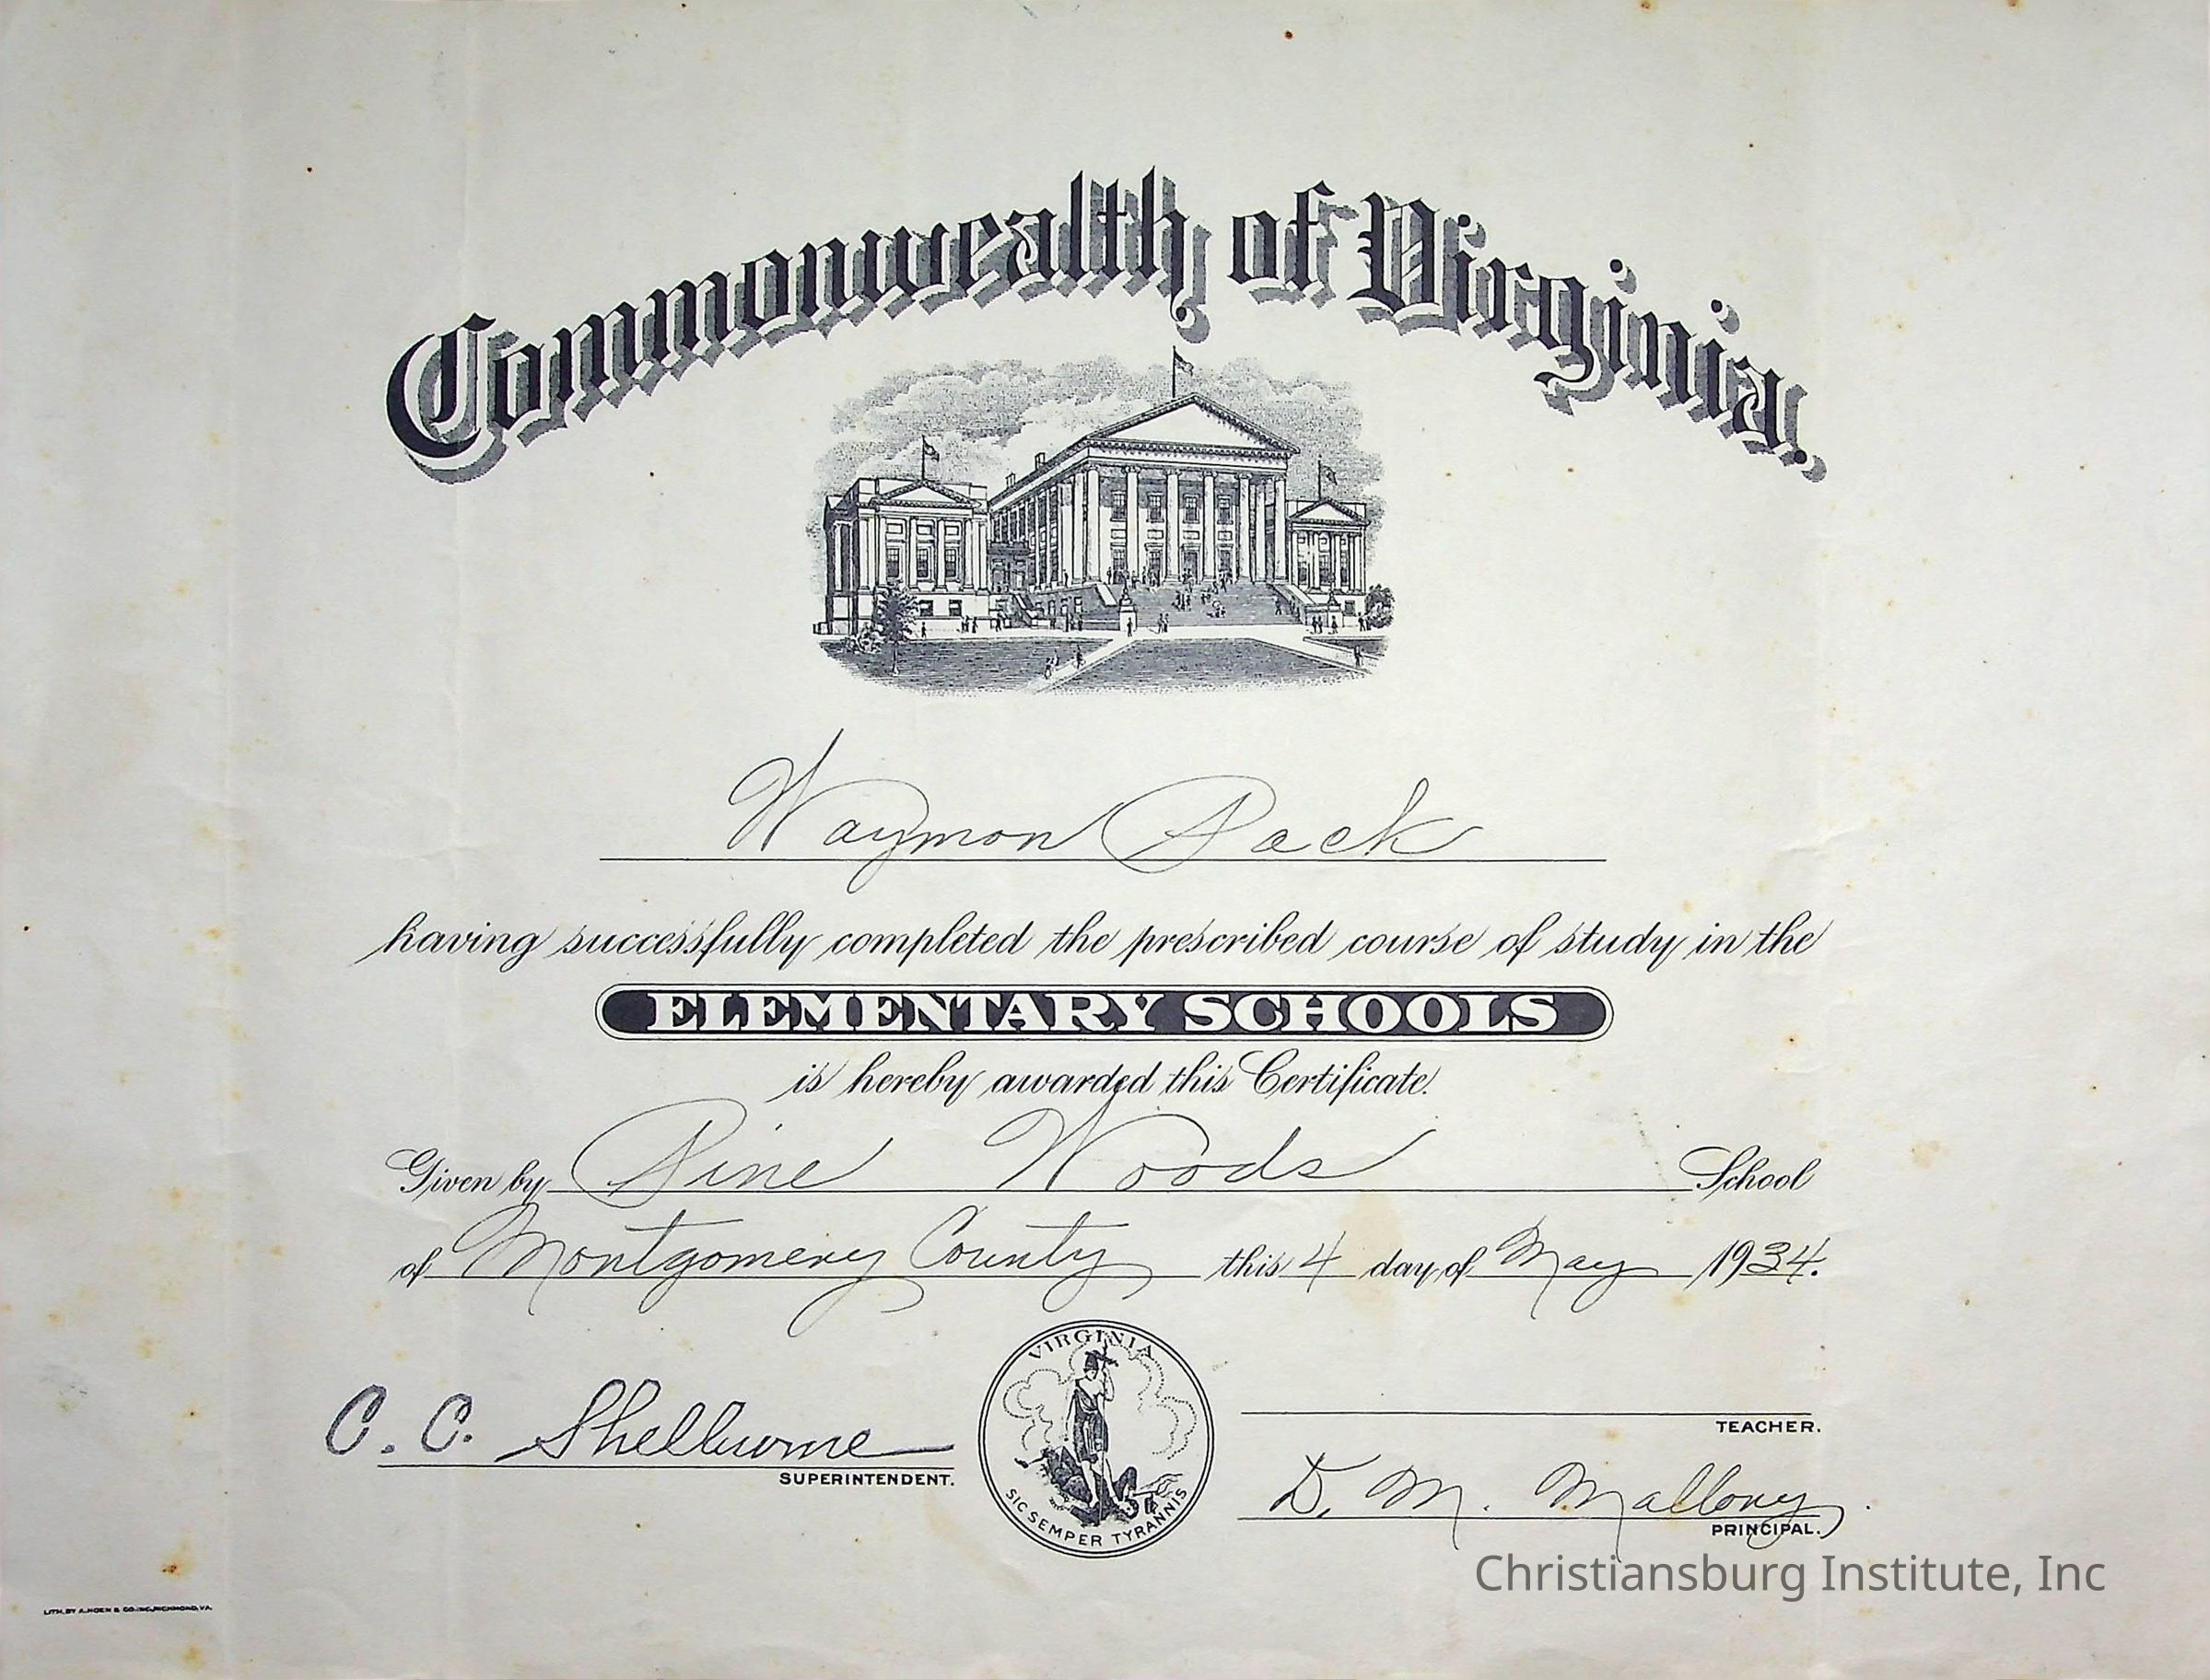 Commonwealth of Virginia.
Waymon Pack
having successfully completed the prescribed course of study in the
ELEMENTARY SCHOOLS
is hereby awarded this Certificate.
Given by Pine Woods School
of Montgomery County this 4 day of May 1934.
VIRGINIA
SIC SEMPER TYRANNIS
C. C. Shelburne
SUPERINTENDENT.
TEACHER.
D. M. Mallory
PRINCIPAL.
Christiansburg Institute, Inc
LITH. BY A. HOEN & CO. INC. RICHMOND, VA.